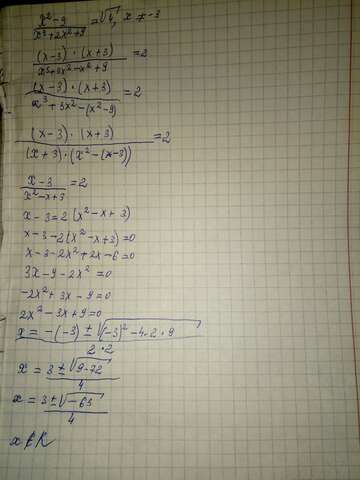 x²-9/x³+2x²+9 = √4, x ≠ -3
(x-3)·(x+3)/x³+3x²-x²+9 = 2
(x-3)·(x+3)/x³+3x²-(x²-9) = 2
(x-3)·(x+3)/(x+3)·(x²-(x-3)) = 2
x-3/x²-x+3 = 2
x-3=2(x²-x+3)
x-3-2(x²-x+3)=0
x-3-2x²+2x-6=0
3x-9-2x²=0
-2x²+3x-9=0
2x²-3x+9=0
x = -(-3) ± √(-3)²-4·2·9/2·2
x = 3±√9-72/4
x = 3±√-63/4
x∉R